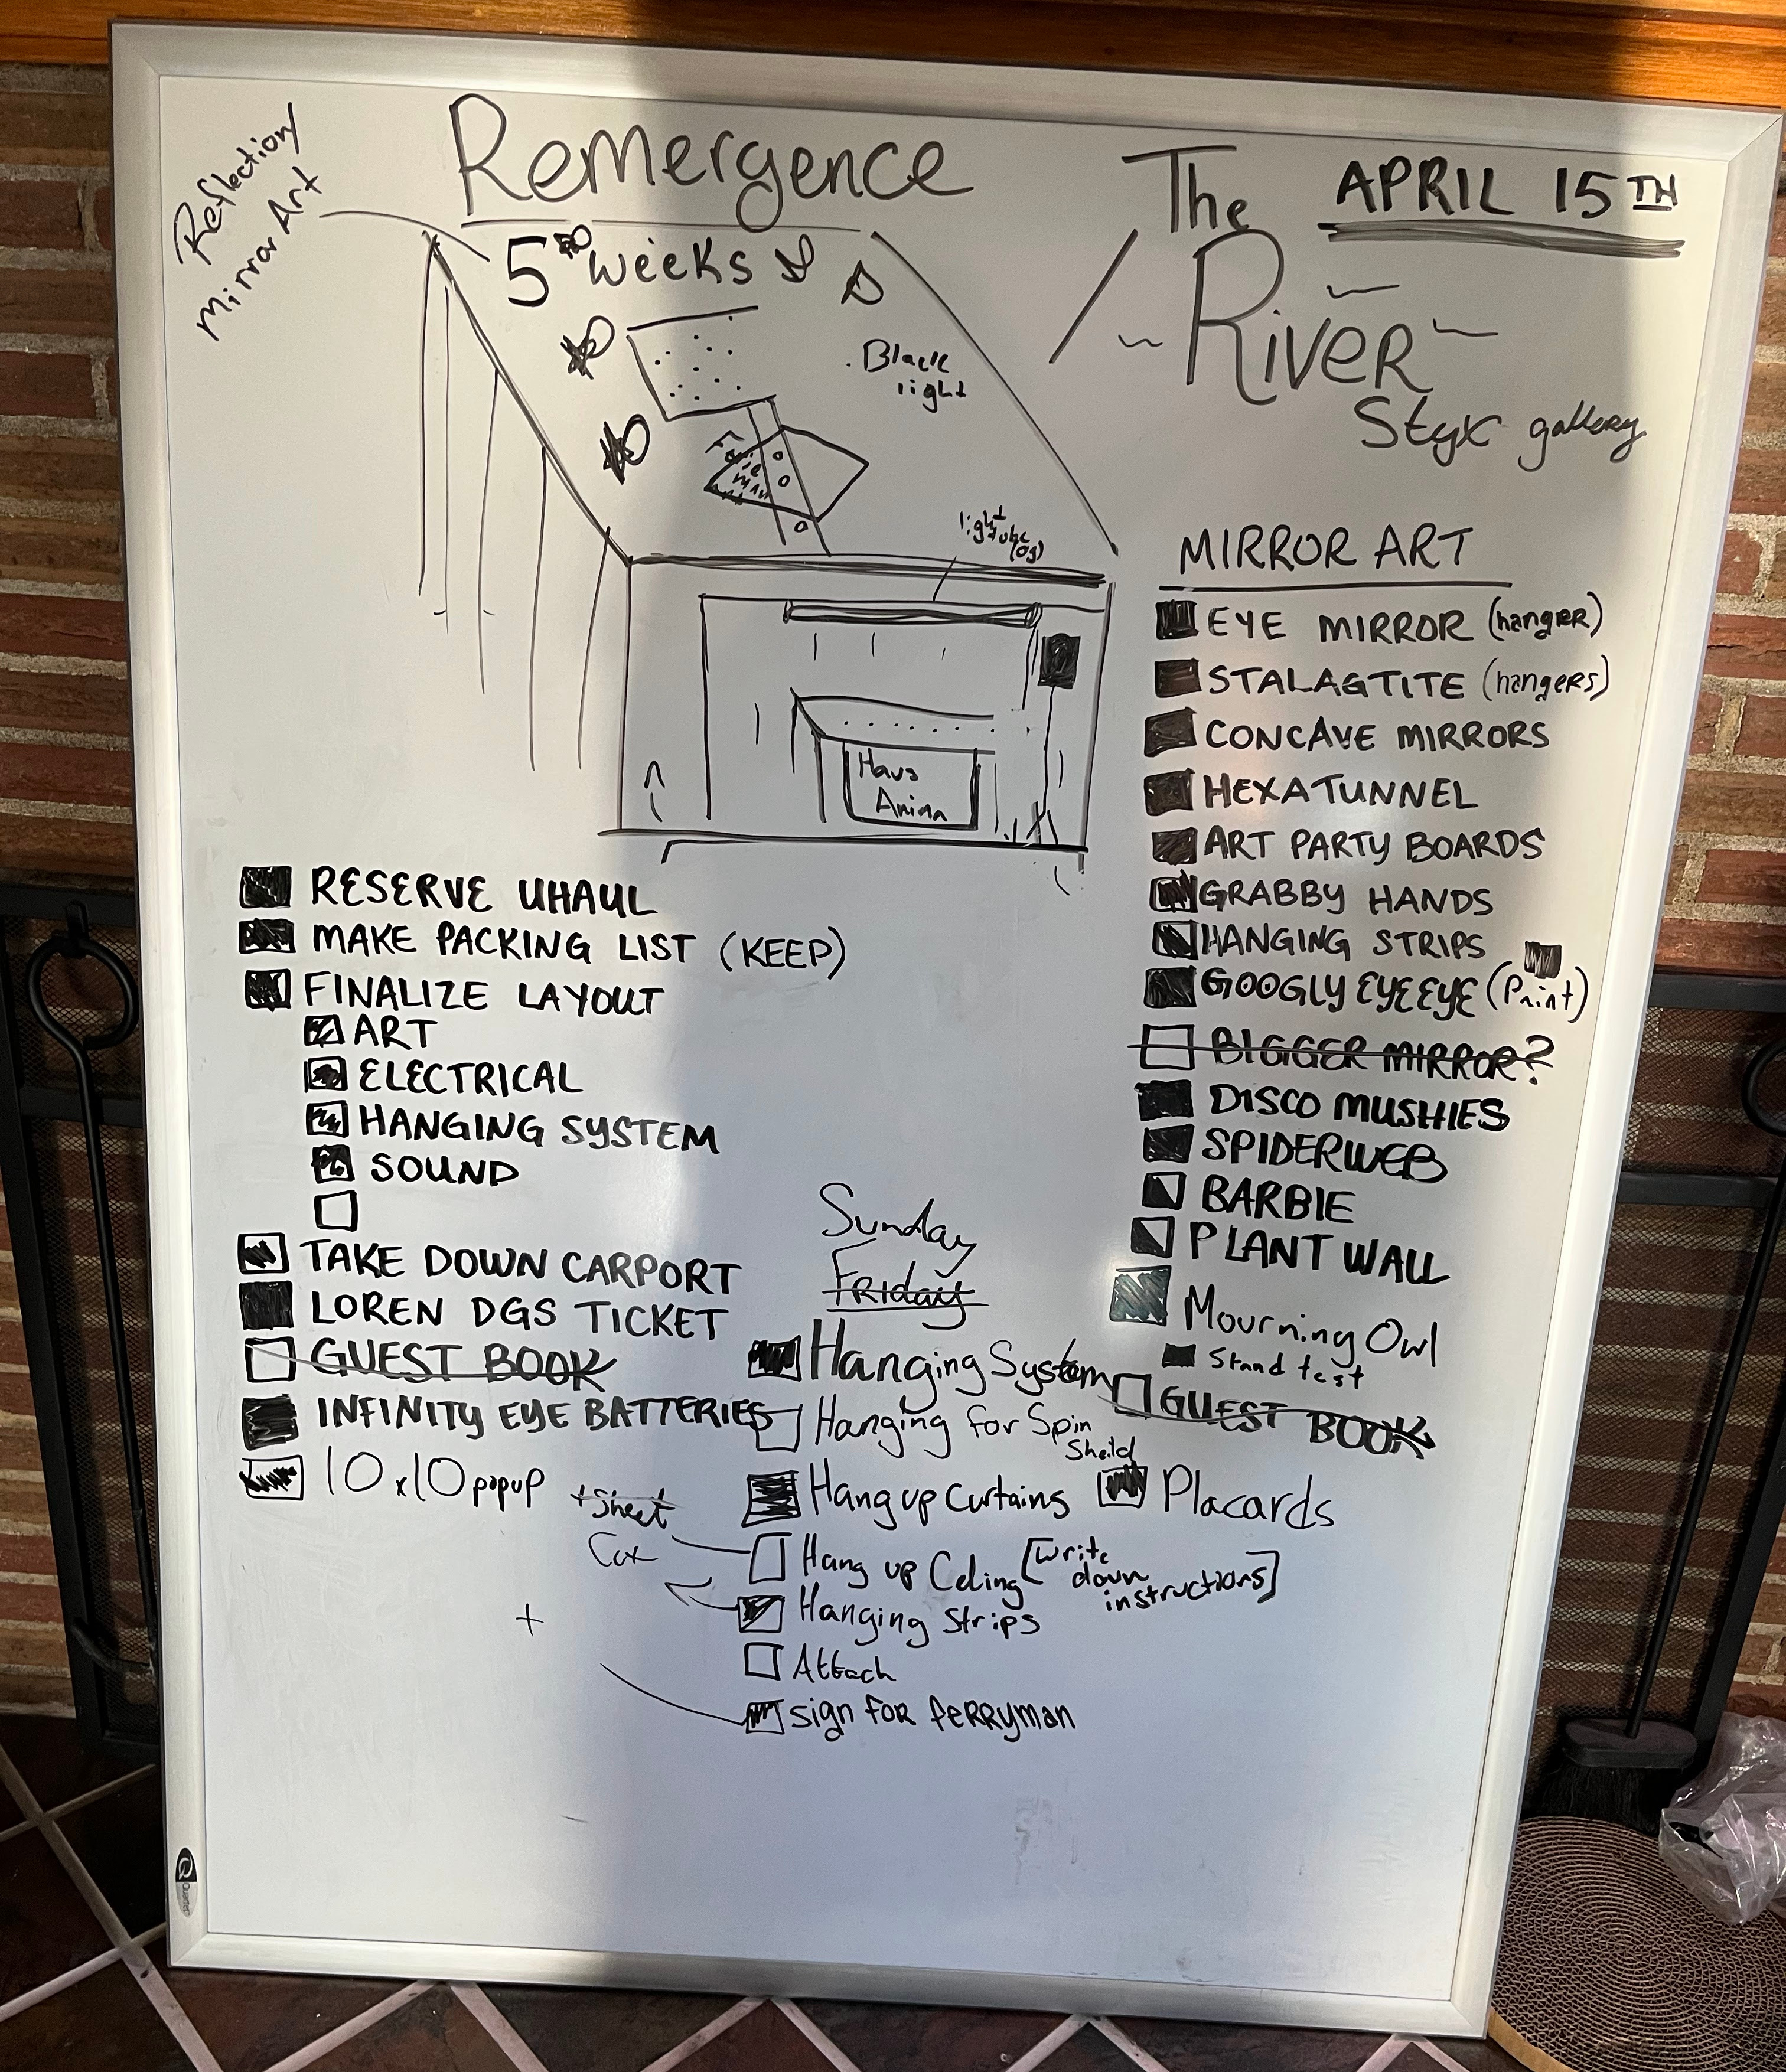 Reflection/
Mirror Art
Remergence
5 weeks
The
River
Styx gallery
APRIL 15TH
Black
light
light
tube
(og)
Haus
Anima
RESERVE UHAUL
MAKE PACKING LIST (KEEP)
FINALIZE LAYOUT
ART
ELECTRICAL
HANGING SYSTEM
SOUND
TAKE DOWN CARPORT
LOREN DGS TICKET
GUEST BOOK
INFINITY EYE BATTERIES
10x10 popup
MIRROR ART
EYE MIRROR (hanger)
STALAGTITE (hangers)
CONCAVE MIRRORS
HEXATUNNEL
ART PARTY BOARDS
GRABBY HANDS
HANGING STRIPS
GOOGLY EYEEYE (Print)
BIGGER MIRROR?
DISCO MUSHIES
SPIDERWEB
BARBIE
PLANT WALL
Mourning Owl
Stand test
GUEST BOOK
Placards
Sunday
Friday
Hanging System
Hanging for Spin
Sheild
Hang up Curtains
+ Sheet
Cut
Hang up Celing [write
down
instructions]
Hanging Strips
Attach
sign for ferryman
Quartet